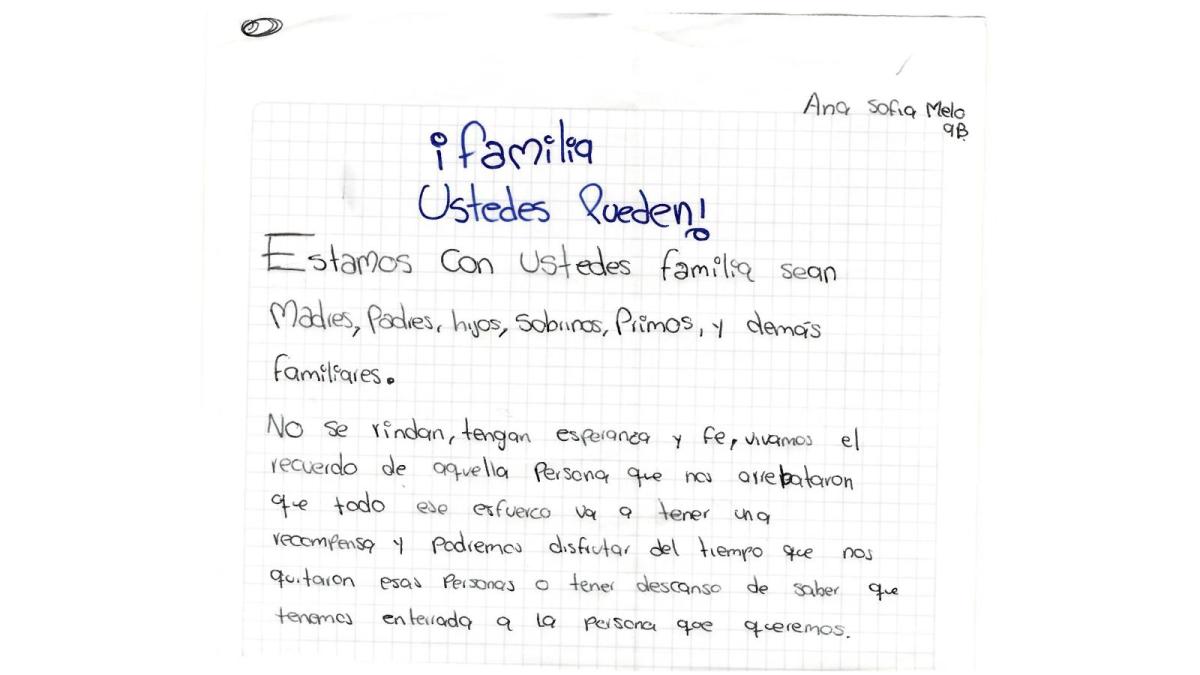 Ana Sofia Melo
9B
¡familia
Ustedes Pueden!
Estamos con ustedes familia sean
Madres, Padres, hijos, Sobrinos, Primos, y demás
familiares.
No se rindan, tengan esperanza y fe, vivamos el
recuerdo de aquella Persona que nos arrebataron
que todo ese esfuerco va a tener una
recompensa y podremos disfrutar del tiempo que nos
quitaron esas Personas o tener descanso de saber que
tenemos enterrada a la persona que queremos.